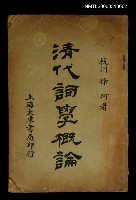 NMTL20080031268
杭州徐珂著
清代詞學概論
上海大東書局印行